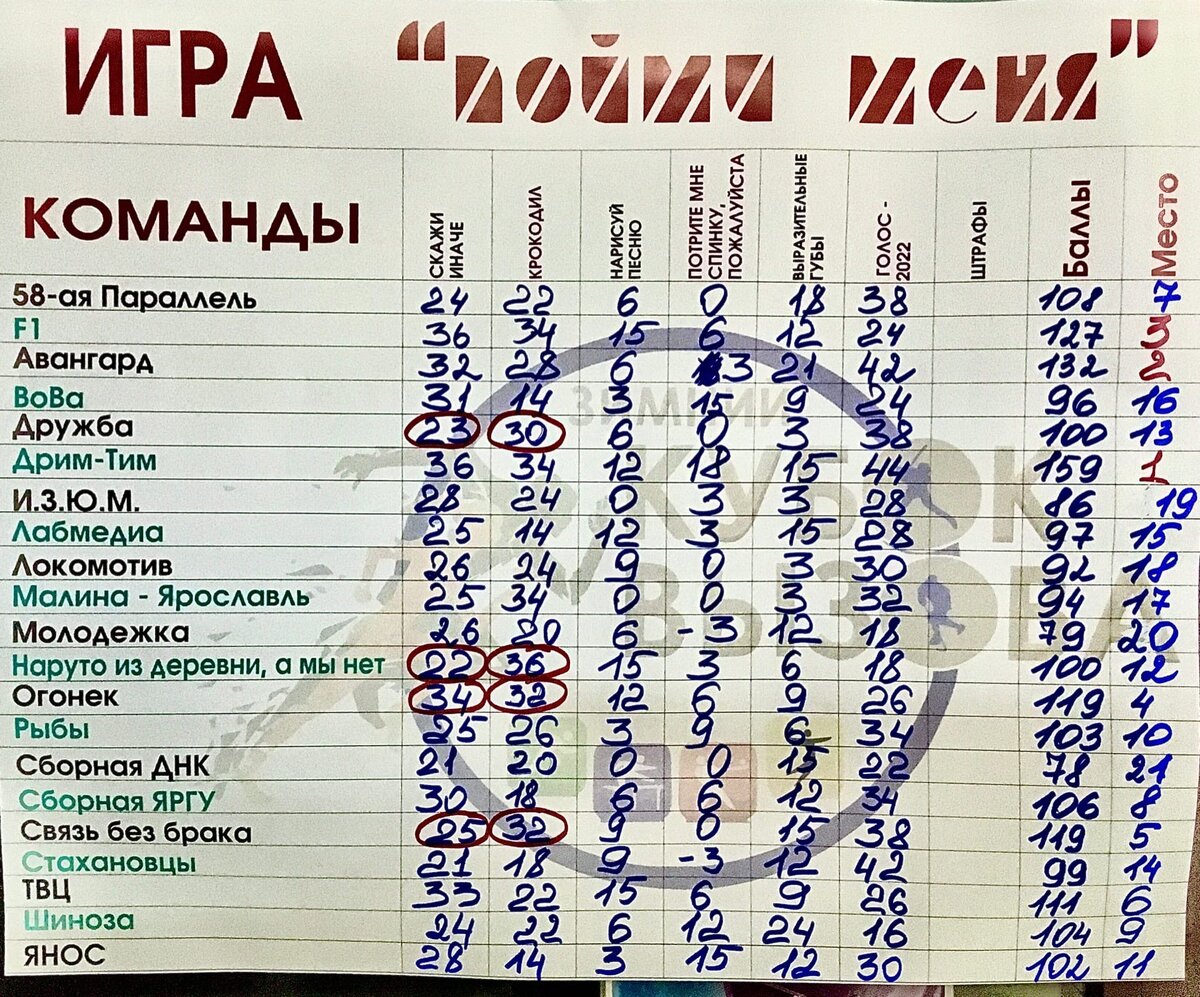 ИГРА “пойми меня”
КОМАНДЫ СКАЖИ ИНАЧЕ КРОКОДИЛ НАРИСУЙ ПЕСНЮ ПОТРИТЕ МНЕ СПИНКУ, ПОЖАЛУЙСТА ВЫРАЗИТЕЛЬНЫЕ ГУБЫ ГОЛОС - 2022 ШТРАФЫ Баллы Место
58-ая Параллель 24 22 6 0 18 38 108 7
F1 36 34 15 6 12 24 127 3
Авангард 32 28 6 3 21 42 132 2
ВоВа 31 14 3 15 9 24 96 16
Дружба 23 30 6 0 3 38 100 13
Дрим-Тим 36 34 12 18 15 44 159 1
И.З.Ю.М. 28 24 0 3 3 28 86 19
Лабмедиа 25 14 12 3 15 28 97 15
Локомотив 26 24 9 0 3 30 92 18
Малина - Ярославль 25 34 0 0 3 32 94 17
Молодежка 26 20 6 -3 12 18 79 20
Наруто из деревни, а мы нет 22 36 15 3 6 18 100 12
Огонек 34 32 12 6 9 26 119 4
Рыбы 25 26 3 9 6 34 103 10
Сборная ДНК 21 20 0 0 15 22 78 21
Сборная ЯРГУ 30 18 6 6 12 34 106 8
Связь без брака 25 32 9 0 15 38 119 5
Стахановцы 21 18 9 -3 12 42 99 14
ТВЦ 33 22 15 6 9 26 111 6
Шиноза 24 22 6 12 24 16 104 9
ЯНОС 28 14 3 15 12 30 102 11
ЗИМНИЙ
КУБОК
ВЫЗОВА